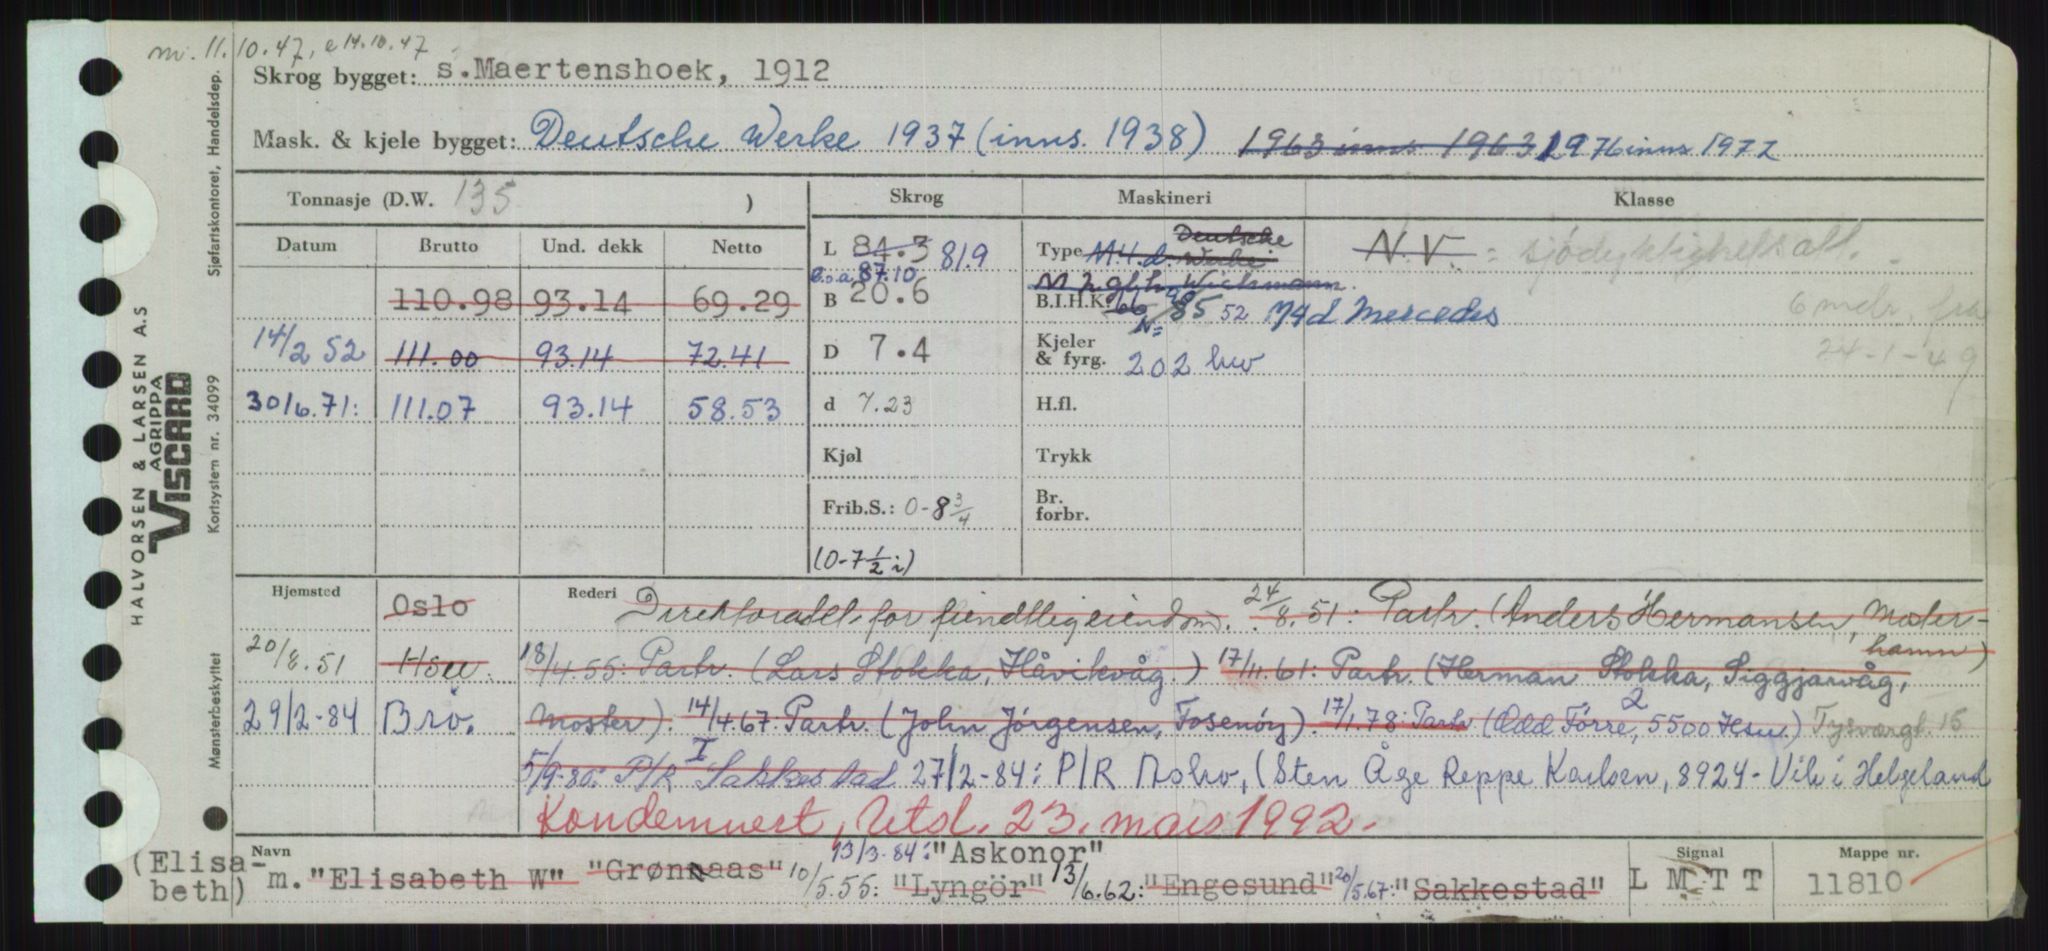 mi. 11.10.47, e 14.10.47
Skrog bygget: s.Maertenshoek, 1912
Mask. & kjele bygget: Deutsche Werke 1937 (inns. 1938) 1963 inns 1963 1976 inns 1977
Tonnasje (D.W. 135 )
Skrog
Maskineri
Klasse
Datum Brutto Und. dekk Netto
110.98 93.14 69.29
14/2 52 111.00 93.14 72.41
30/6.71: 111.07 93.14 58.53
L 84.3 81.9
l.o.a. 87.10
B 20.6
D 7.4
d 7.23
Kjøl
Frib.S.: 0-8 3/4
(0-7 1/2 i)
Type M4.d. Deutsche Werke
Wichmann
B.I.H.K. 66 98 85 52 M4d Mercedes
N=
Kjeler & fyrg. 202 hw
H.fl.
Trykk
Br. forbr.
N.V. = sjødyktighetsatt.
6 mdr. fra
24-1-49
Hjemsted Oslo
20/8.51 Hsu.
29/2-84 Brø.
Rederi Direktoratet for fiendtlig eiendom. 24/8.51: Partr. (Anders Hermansen, Moster-
hamn)
18/4.55: Partr. (Lars Stokka, Håvikvåg.) 17/11.61: Partr. (Herman Stokka, Siggjarvåg,
Moster). 14/4.67: Partr. (John Jörgensen, Fosenöy). 17/1.78: Partr (Odd Förre, 2 5500 Hsu.) Tysværgt. 15
5/9-80: P/R I Sakkestad 27/2-84: P/R Nolro, (Sten Åge Reppe Karlsen, 8924- Vik i Helgeland
Kondemnert, Utsl. 23. mars 1992.
13/3-84: "Askonor"
(Elisa-
beth)
Navn m. "Elisabeth W" "Grønnaas" 10/5.55: "Lyngör" 13/6.62: "Engesund" 20/5.67: "Sakkestad"
Signal LMTT
Mappe nr. 11810
HALVORSEN & LARSEN A.S
AGRIPPA
VISCARD
Sjøfartskontoret, Handelsdep.
Kortsystem nr. 34099
Mønsterbeskyttet